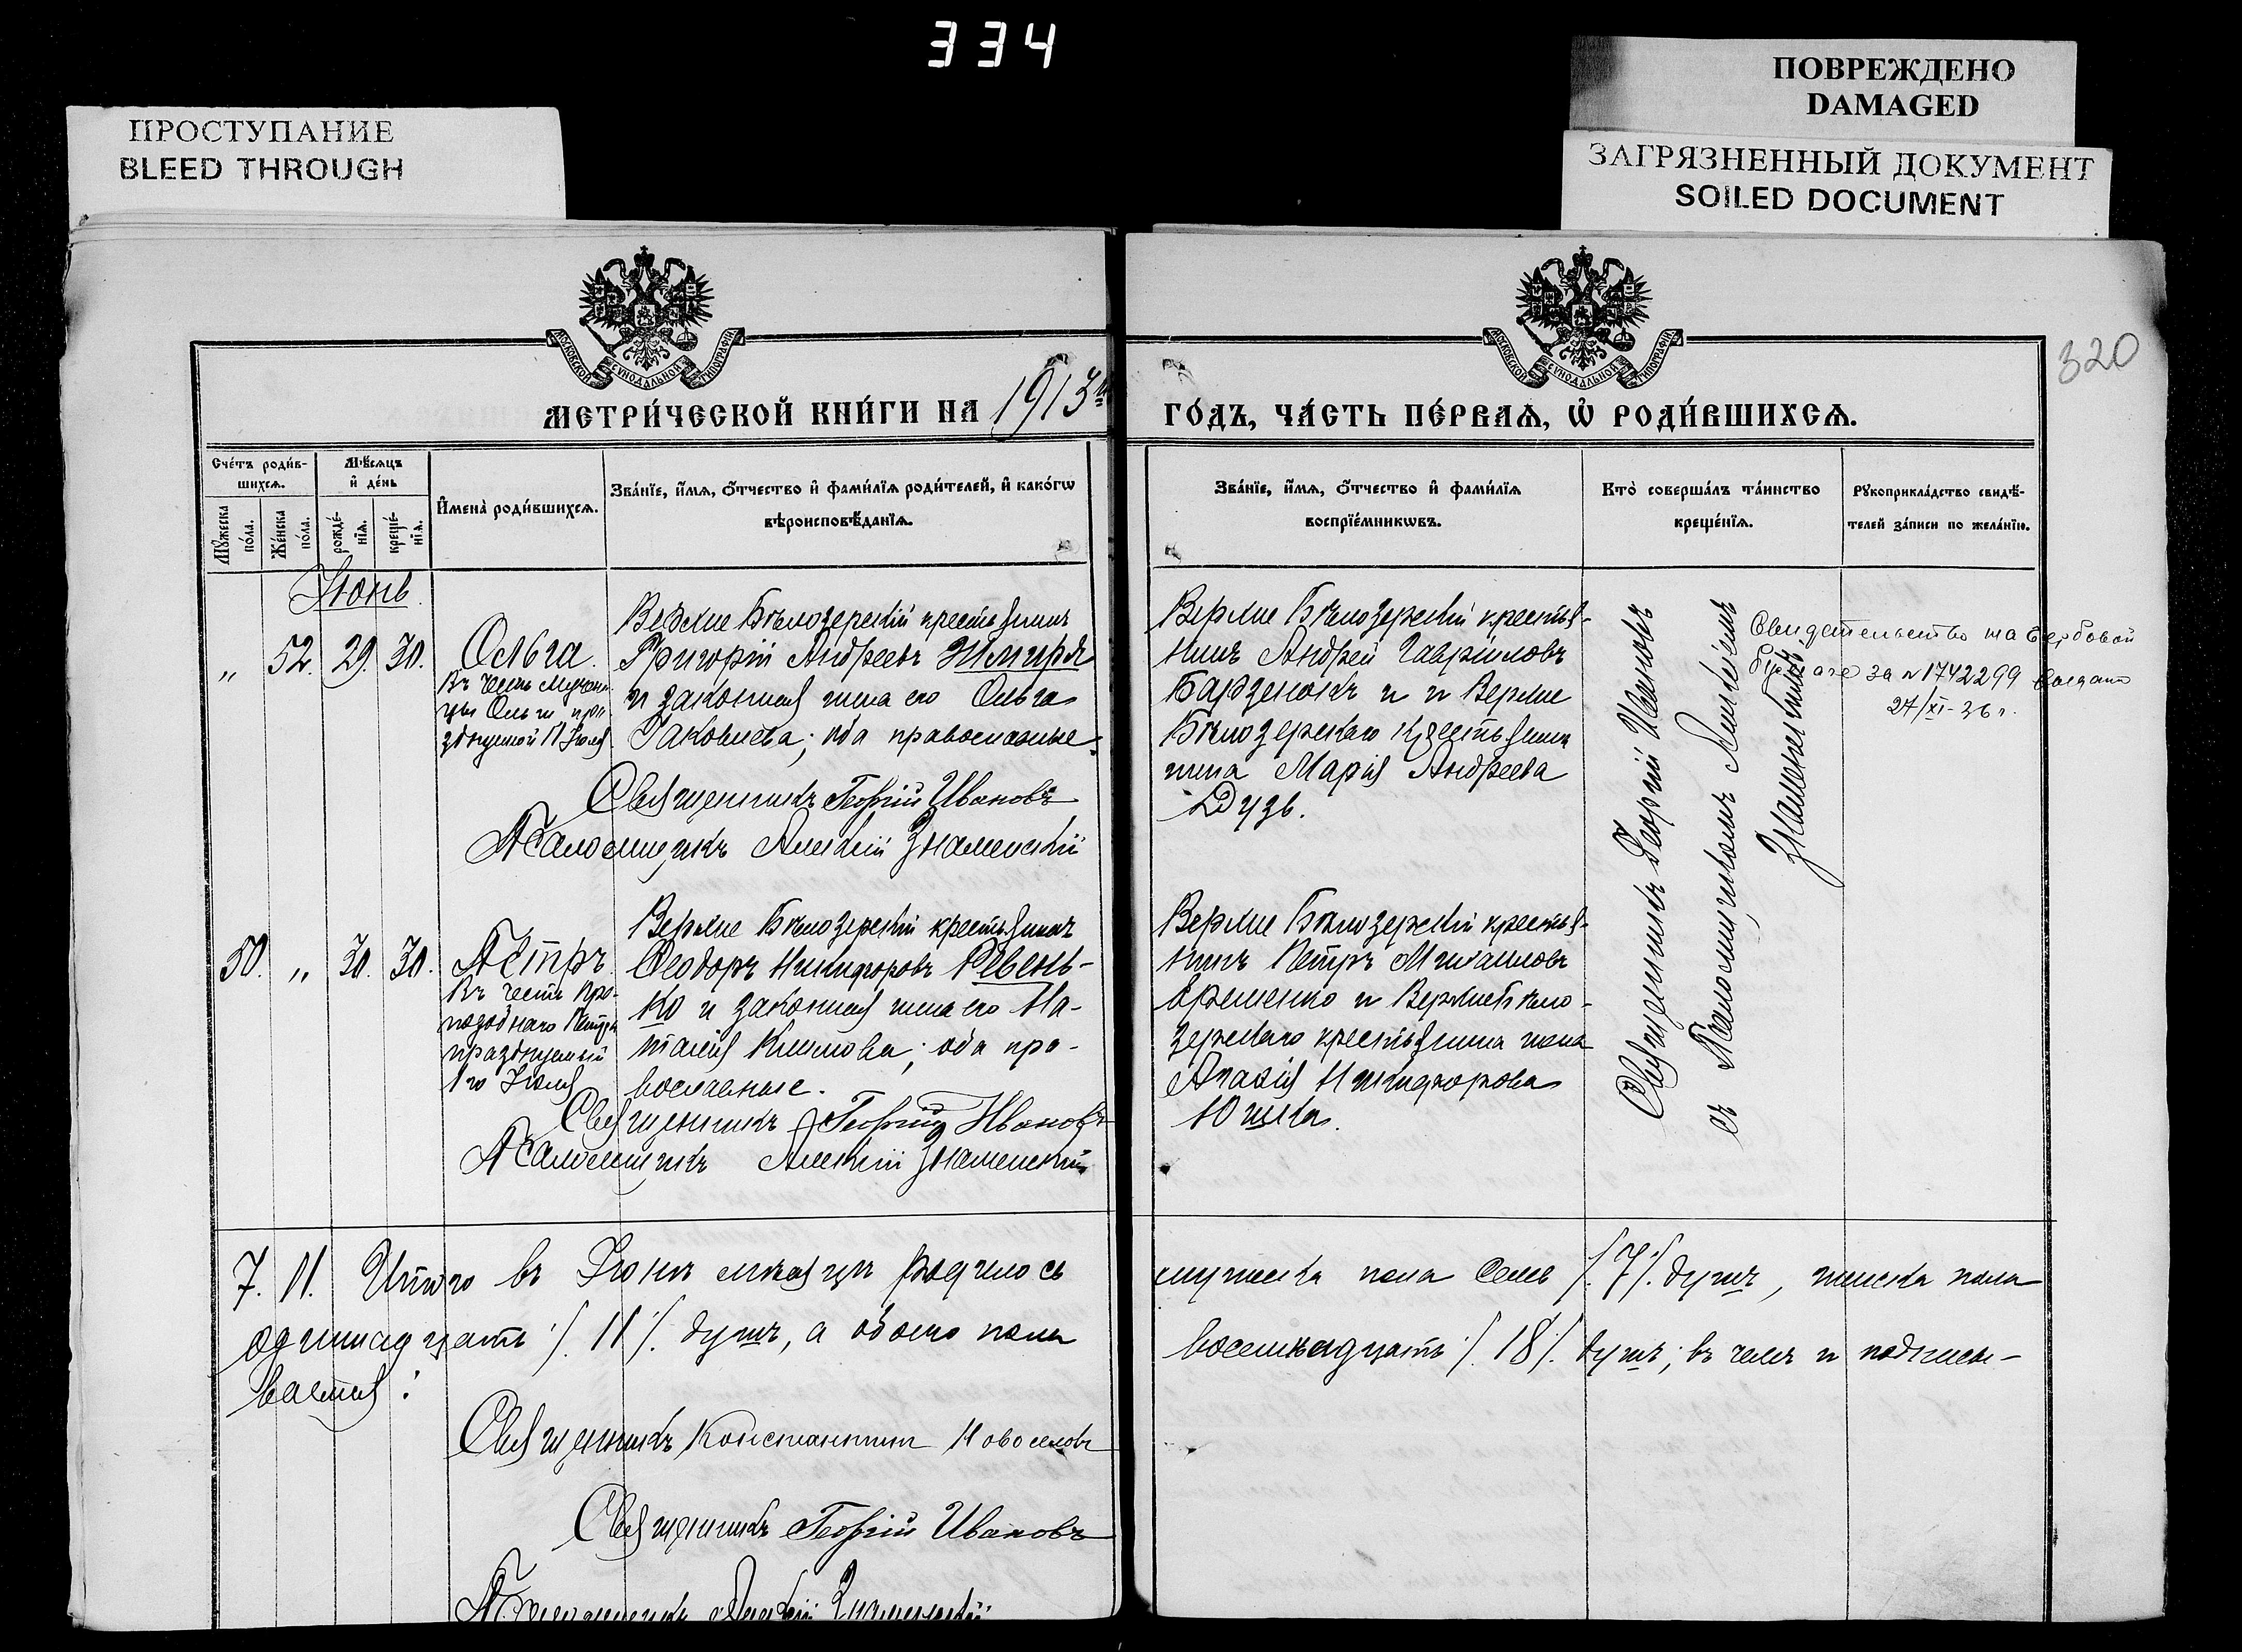 334
ПРОСТУПАНИЕ
BLEED THROUGH
ПОВРЕЖДЕНО
DAMAGED
ЗАГРЯЗНЕННЫЙ ДОКУМЕНТ
SOILED DOCUMENT
320
МОСКОВСКОЙ СѴНОДАЛЬНОЙ ТИПОГРАФІИ
МОСКОВСКОЙ СѴНОДАЛЬНОЙ ТИПОГРАФІИ
МЕТРИ́ЧЕСКОЙ КНИ́ГИ НА 1913й
ГО́ДЪ, ЧА́СТЬ ПЕ́РВАѦ, Ѡ҆ РОДИ́ВШИХСѦ.
Сче́тъ роди́в-
шихсѧ.
Мѣ́сѧцъ
и҆ де́нь
Мꙋ́жеска
по́ла.
Же́нска
по́ла.
рожде́-
нїѧ.
креще́-
нїѧ.
И҆мена̀ роди́вшихсѧ.
Зва́нїе, и҆́мѧ, ѻ҆́тчество и҆ фами́лїѧ роди́телей, и҆ како́гѡ
вѣроисповѣ́данїѧ.
Зва́нїе, и҆́мѧ, ѻ҆́тчество и҆ фами́лїѧ
воспрїе́мникѡвъ.
Кто̀ соверша́лъ та́инство
креще́нїѧ.
Рꙋкоприкла́дство свидѣ́-
телей за́писи по жела́нїю.
Іюнь.
„ 52. 29. 30.
Ольга.
Въ честь Мучени-
цы Ольги пра-
зднуемой 11 Іюля
Верхне Бѣлозерскій крестьянинъ
Григорій Андреевъ Жмиря
и законная жена его Ольга
Іаковлева; оба православные.
Священникъ Георгій Ивановъ
Псаломщикъ Алексій Знаменскій
Верхне Бѣлозерскій крестья-
нинъ Андрей Гавриловъ
Барзенокъ и и Верхне
Бѣлозерскаго крестьянина
жена Марія Андреева
Дузь.
Священникъ Георгій Ивановъ
съ Псаломщикомъ Алексіемъ
Знаменскимъ
Свидетельство на гербовой
бумаге за № 1742299 выдано
27/XI-36 г.
50. „ 30. 30.
Петръ
Въ честь Пре-
подобнаго Петра
празднуемый
1го Іюля
Верхне Бѣлозерскій крестьянинъ
Ѳеодоръ Никифоровъ Ревень-
ко и законная жена его На-
талія Климова; оба пра-
вославные.
Священникъ Георгій Ивановъ
Псаломщикъ Алексій Знаменскій
Верхне Бѣлозерскій крестья-
нинъ Петръ Михаиловъ
Еременко и Верхне Бѣло-
зерскаго крестьянина жена
Агаѳія Никифорова
Юшка.
7. 11. Итого въ Іюнѣ мѣсяцѣ родилось
мужеска пола семь /7/ душъ, женска пола
одинадцать /11/ душъ, а обоего пола
восемнадцать /18/ душъ; въ чемъ и подписы-
ваемся:
Священникъ Константинъ Новоселовъ
Священникъ Георгій Ивановъ
Псаломщикъ Алексій Знаменскій